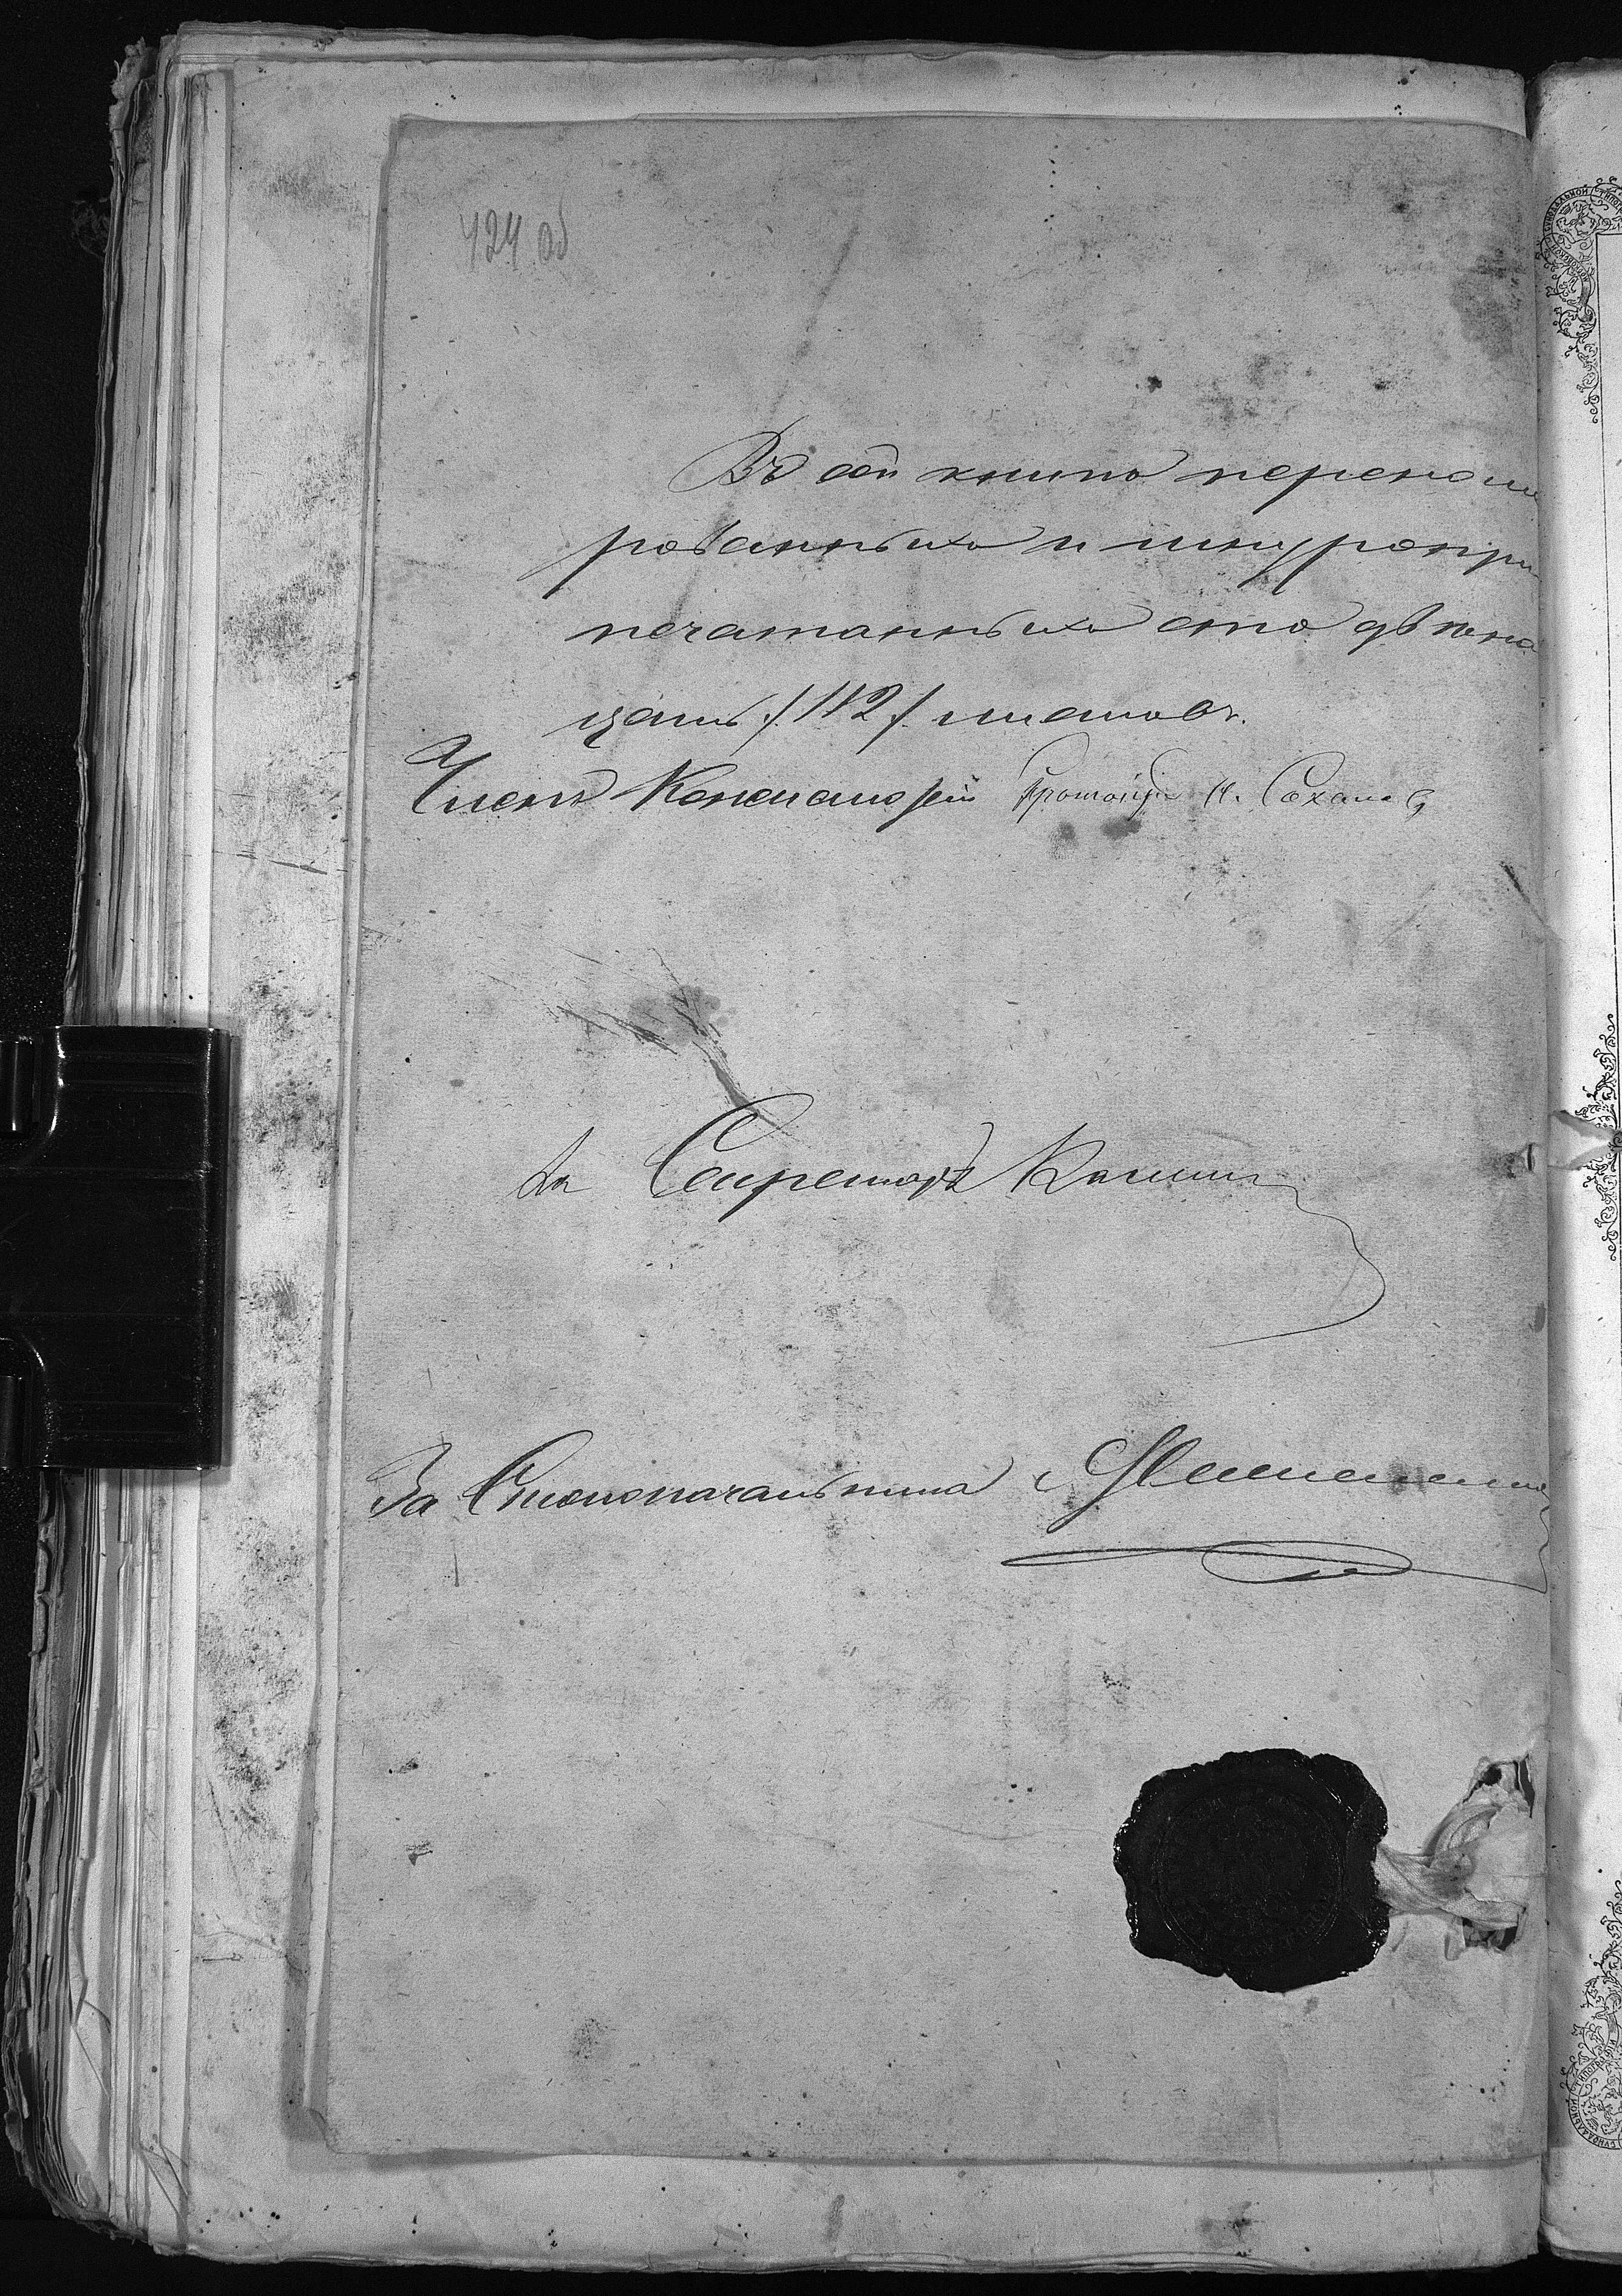 424 об
Въ сей книгѣ перенуме
рованныхъ и шнуропри
печатанныхъ сто двѣна
цать /112/ листовъ.
Членъ Консисторіи Протоіерей Н.
За Секретаря
За Столоначальника